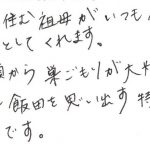 住む祖母がいつも
としてくれます。
頃から巣ごもりが大や
飯田を思い出す特
です。